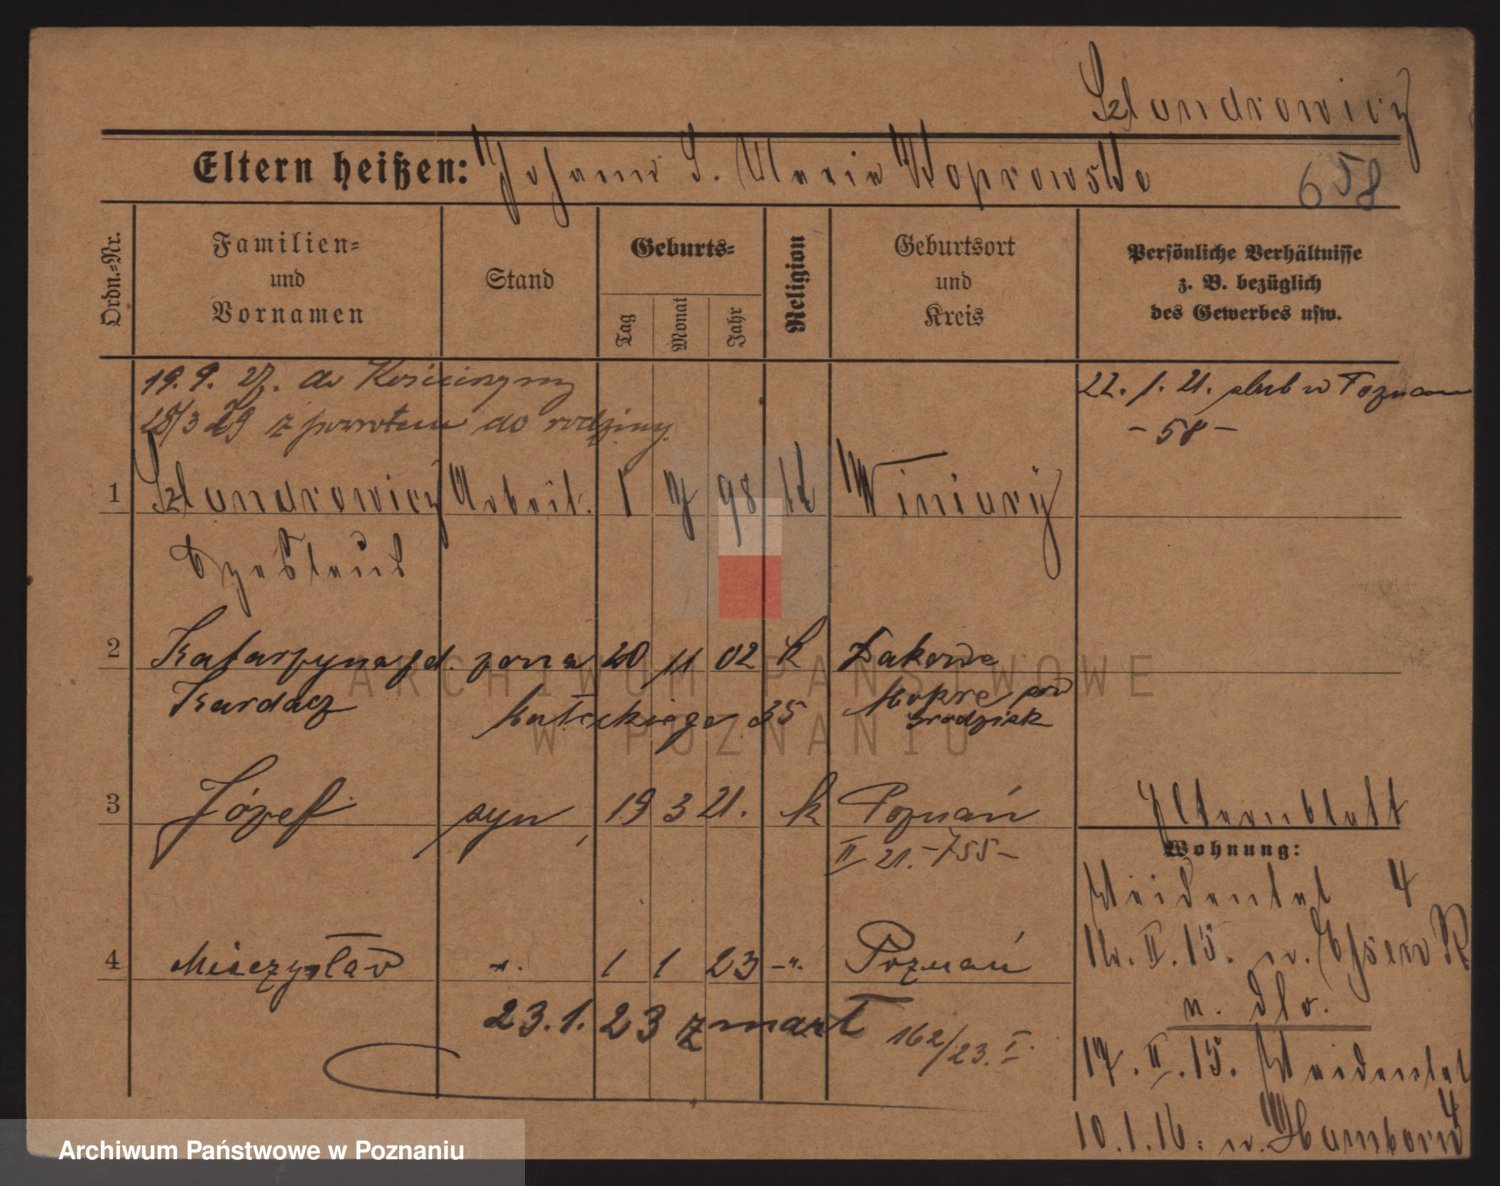 Szlandrowicz
Eltern heißen: Johann S. Maria Koprowska
658
Ordn.-Nr.
Familien- und Vornamen
Stand
Geburts-
Tag
Monat
Jahr
Religion
Geburtsort und Kreis
Persönliche Verhältnisse
z. B. bezüglich
des Gewerbes usw.
19. 9. 27. do Kościerzyny
28/3 29 z powrotem do rodziny
22. 1. 21. ślub w Poznan
- 58 -
1 Szlandrowicz Arbeit. 1 7 98 kt Winiary
Czeslaus
2 Katarzyna jd. żona 20 11 02 k Dakowe
Kardacz
Małeckiego 35
Mokre pow
Grodzisk
3 Józef syn 19 3 21. k Poznań
II 21. -755-
Elternblatt
Wohnung:
Weidental 4
12. II. 15. n. Essen R
n. dlo.
4 Mieczysław 1 1 23 -"- Poznań
23. 1. 23 zmarł 162/23. I.
17. II. 15. Weidental
4
10. 1. 16. n. Hamborn
Archiwum Państwowe w Poznaniu
ARCHIWUM PAŃSTWOWE
W POZNANIU